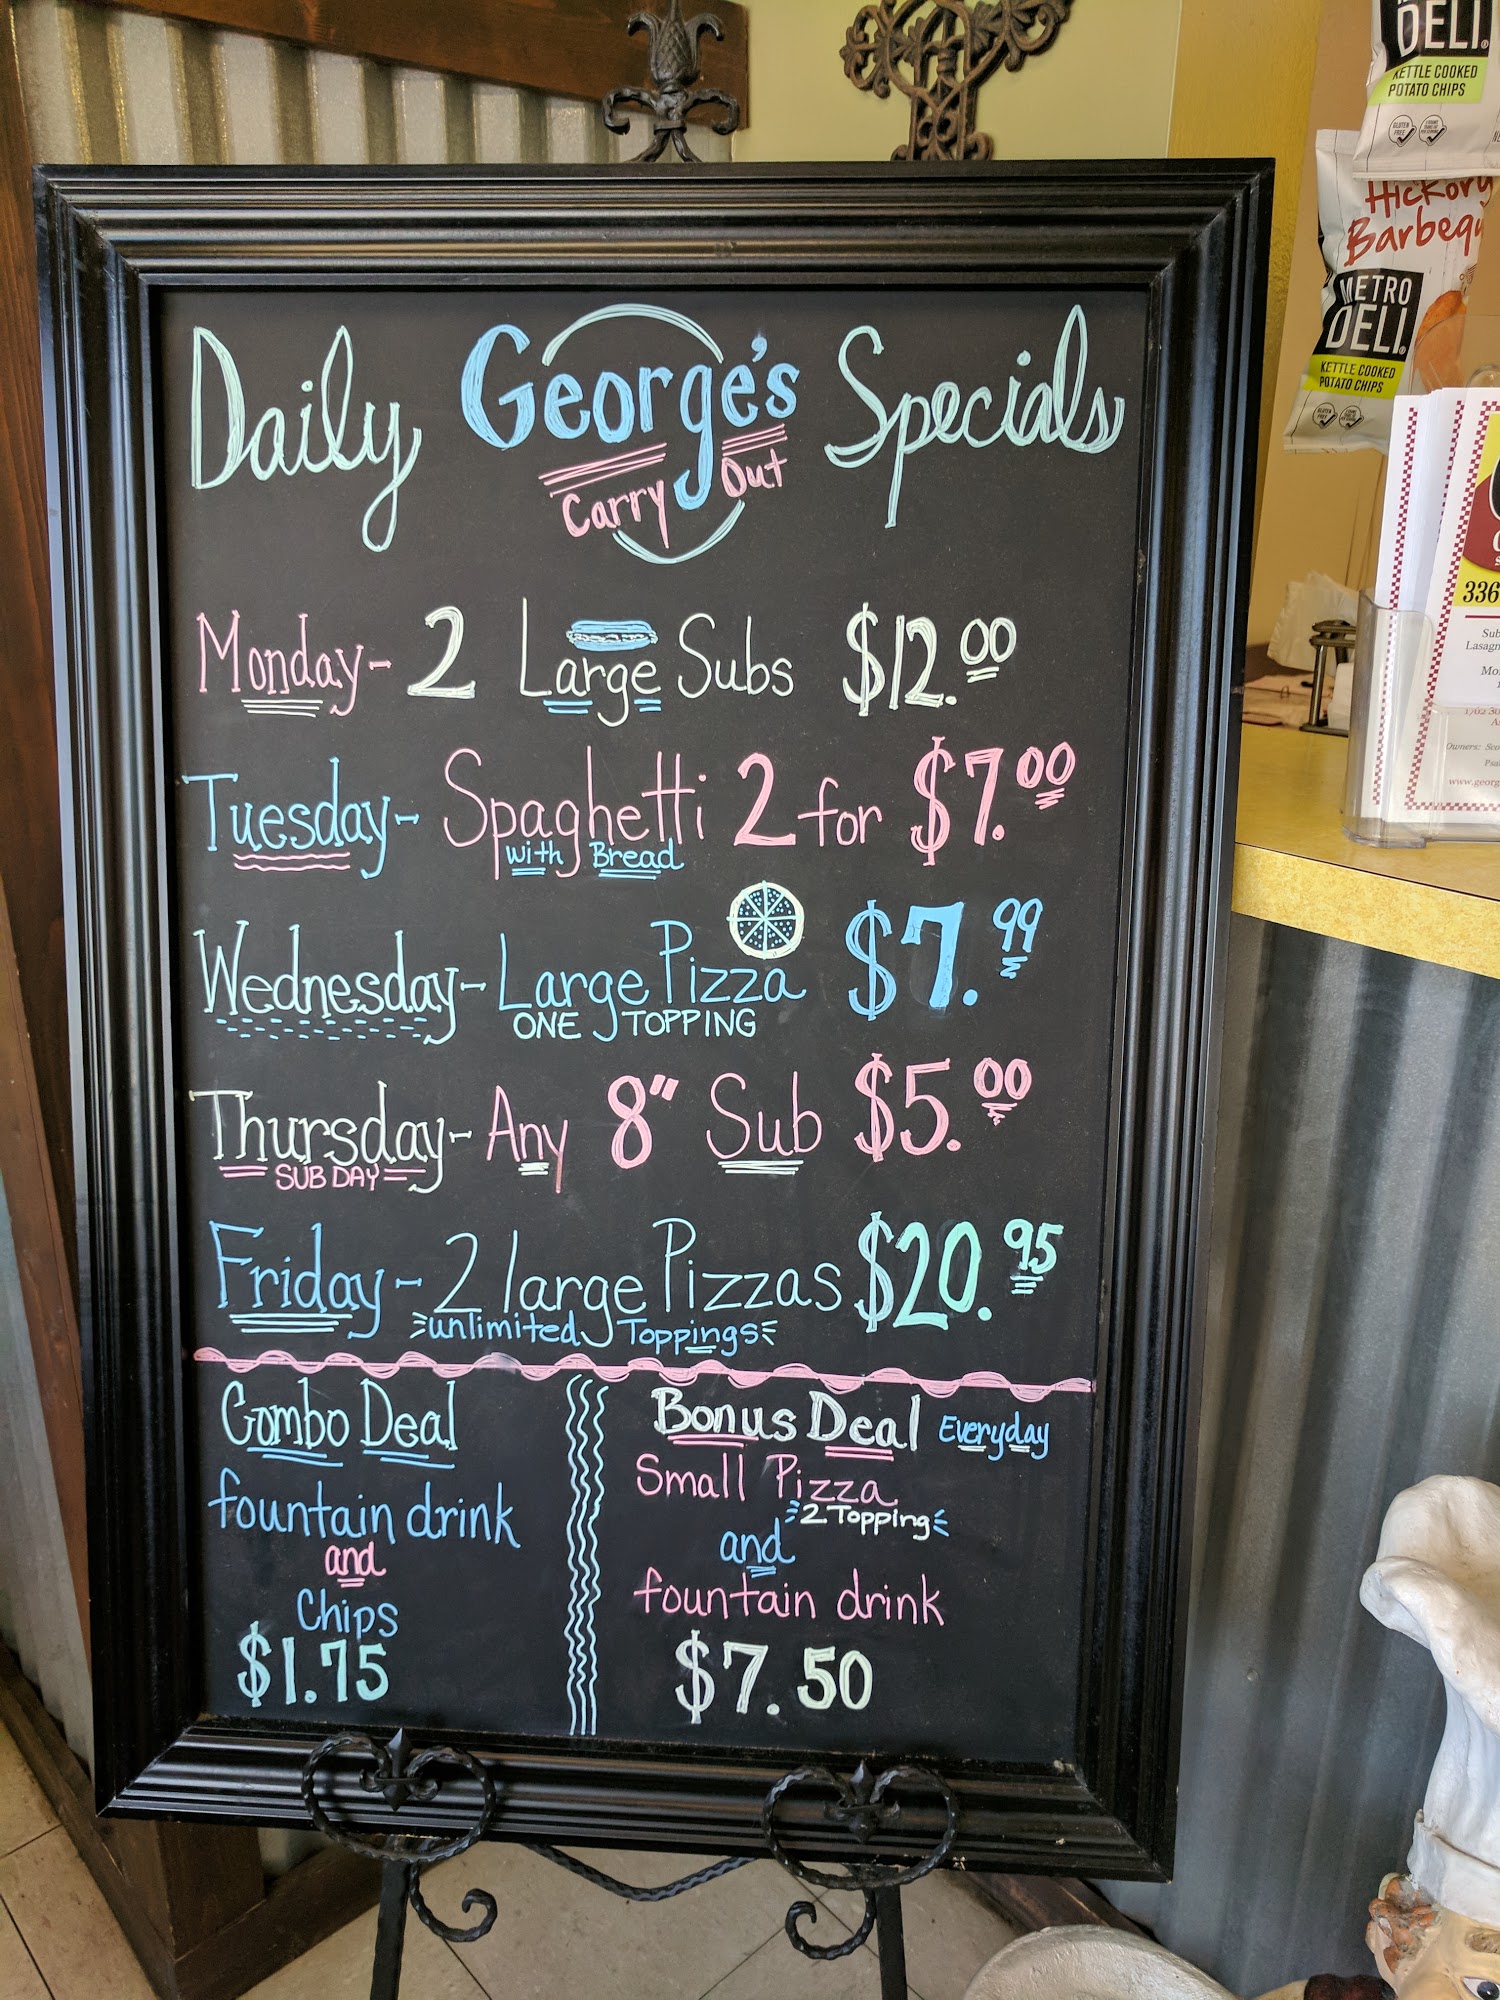 Daily George's Specials
Carry Out
Monday- 2 Large Subs $12.00
Tuesday- Spaghetti 2 for $7.00
with Bread
Wednesday- Large Pizza $7.99
ONE TOPPING
Thursday- Any 8" Sub $5.00
SUB DAY
Friday- 2 large Pizzas $20.95
unlimited Toppings
Combo Deal
fountain drink
and
Chips
$1.75
Bonus Deal Everyday
Small Pizza
2 Topping
and
fountain drink
$7.50
DELI
KETTLE COOKED
POTATO CHIPS
Hickory
METRO
DELI
KETTLE COOKED
POTATO CHIPS
336
Owners: